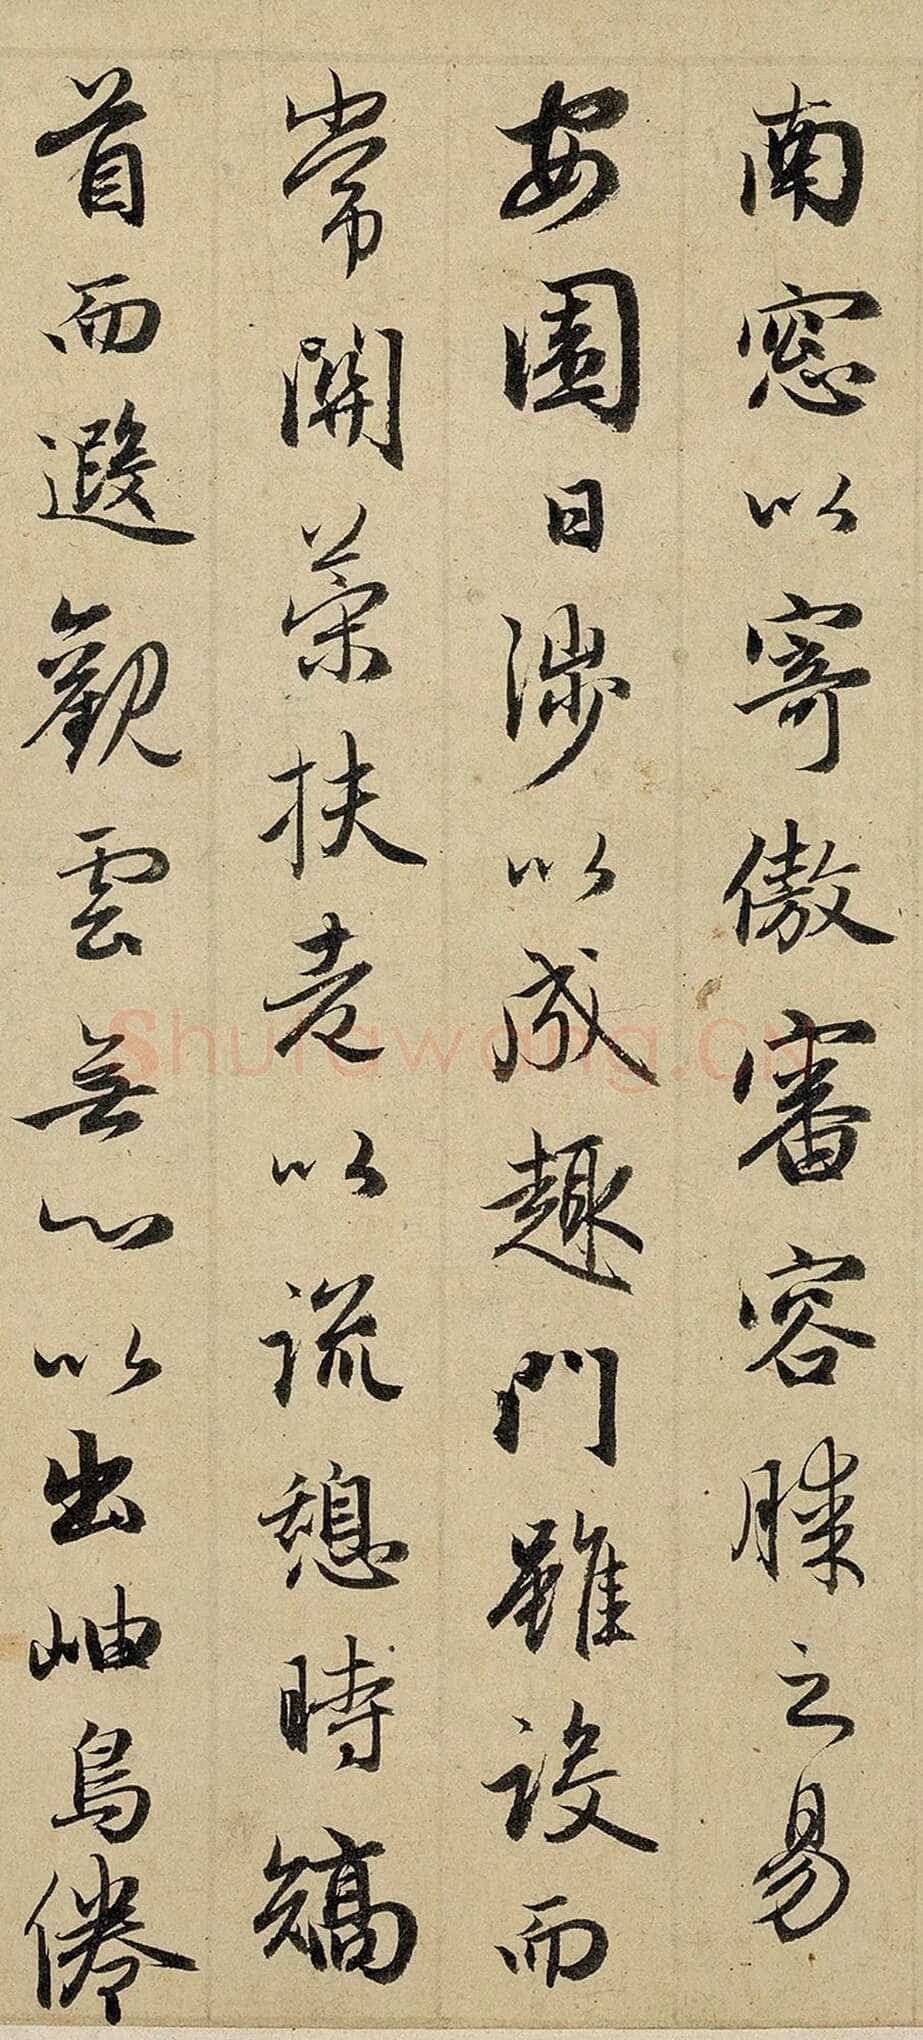 南窓以寄傲審容膝之易
安園日涉以成趣門雖設而
常關策扶老以流憩時矯
首而遐觀雲無心以出岫鳥倦
Shufawang.CN